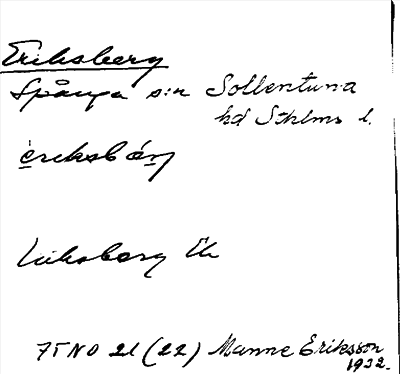 Eriksberg
Spånga s:n Sollentuna
hd Sthlms l.
eriksbärj
Eriksberg Ek
75 NO 2l (22) Manne Eriksson
1932.